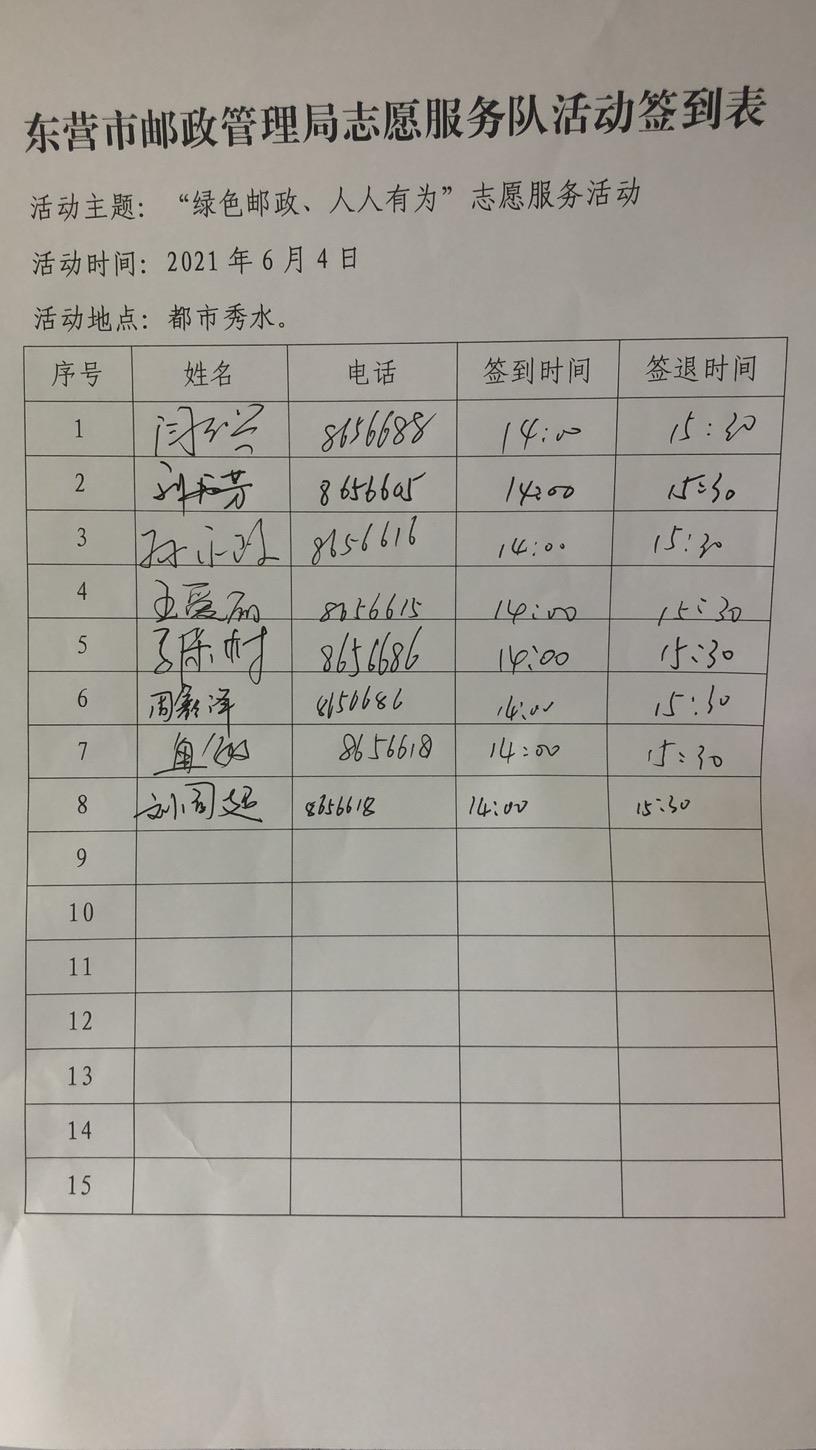 东营市邮政管理局志愿服务队活动签到表
活动主题：“绿色邮政、人人有为”志愿服务活动
活动时间：2021年6月4日
活动地点：都市秀水。
序号 姓名 电话 签到时间 签退时间
1 8656688 14:00 15:30
2 8656605 14:00 15:30
3 8656616 14:00 15:30
4 王爱丽 8656615 14:00 15:30
5 8656686 14:00 15:30
6 8656686 14:00 15:30
7 8656618 14:00 15:30
8 刘同超 8656618 14:00 15:30
9
10
11
12
13
14
15